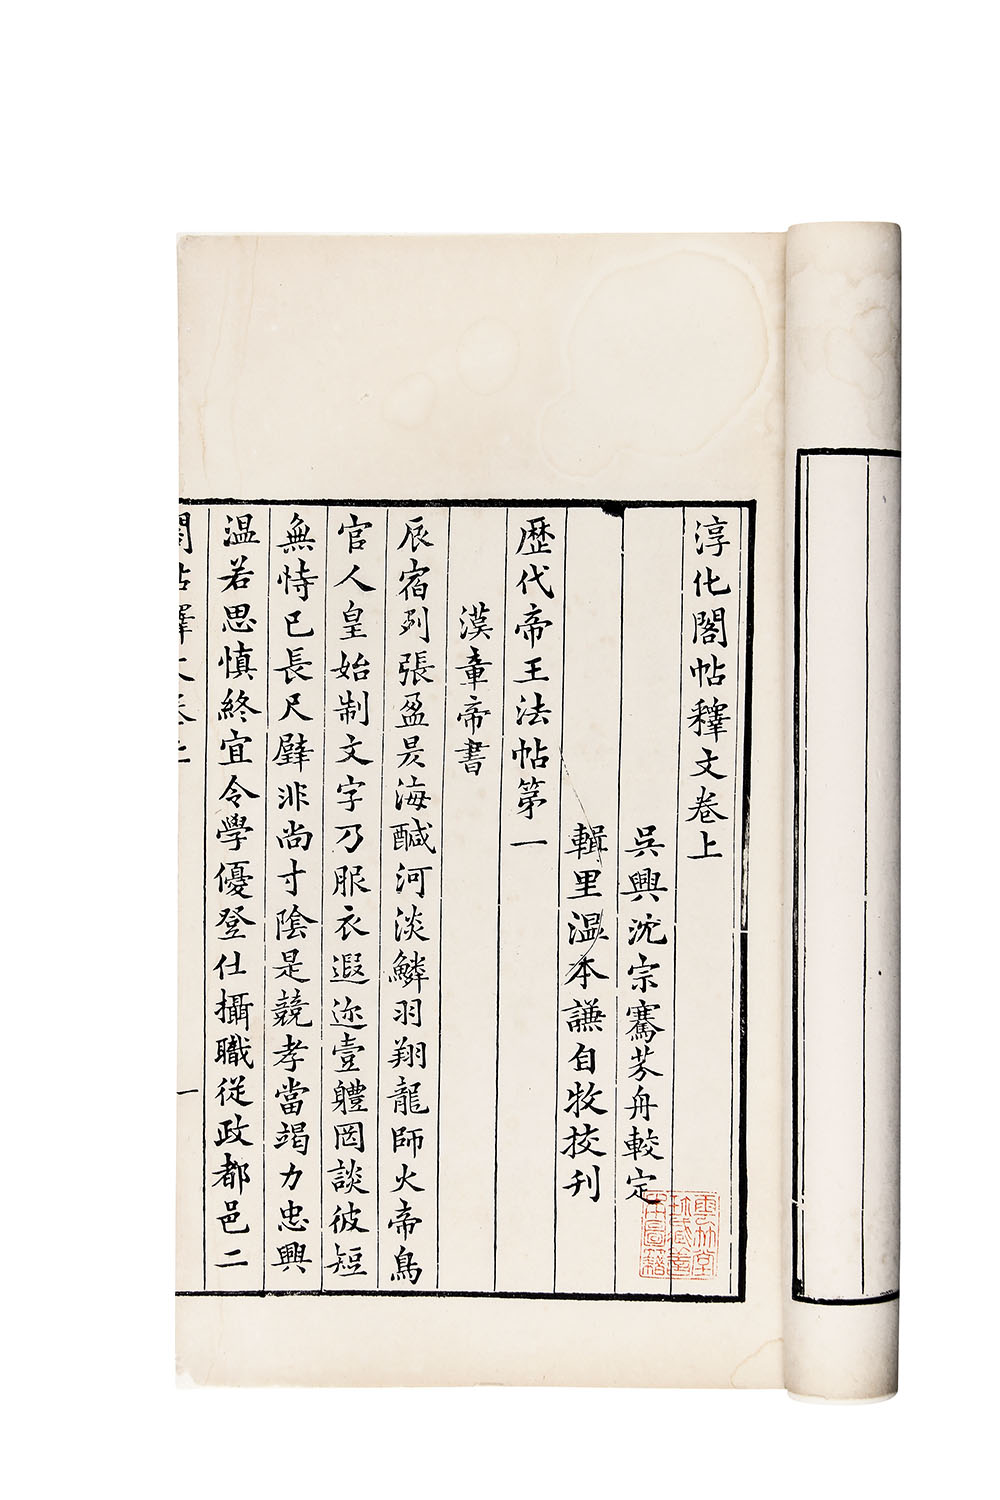 淳化閣帖釋文卷上
吳興沈宗騫芥舟較定
輯里温本謙自牧挍刊
歷代帝王法帖第一
漢章帝書
辰宿列張盈昃海醎河淡鱗羽翔龍師火帝鳥
官人皇始制文字乃服衣遐迩壹軆罔談彼短
無恃已長尺璧非尚寸陰是競孝當竭力忠興
温若思慎終宜令學優登仕攝職從政都邑二
閣帖釋文卷上
一
雲林堂
珍藏善
本圖籍